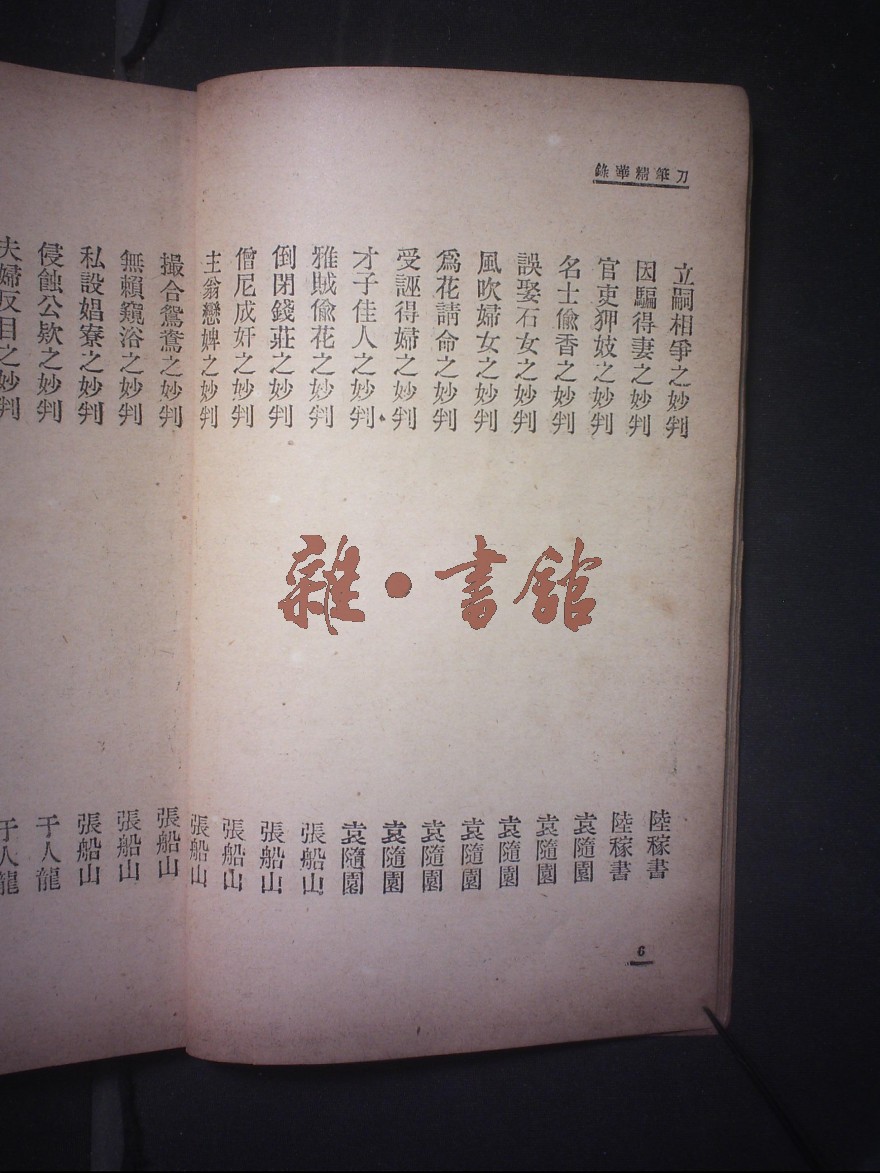 刀筆精華錄
立嗣相爭之妙判 陸稼書
因騙得妻之妙判 陸稼書
官吏狎妓之妙判 袁隨園
名士偸香之妙判 袁隨園
誤娶石女之妙判 袁隨園
風吹婦女之妙判 袁隨園
爲花請命之妙判 袁隨園
受誣得婦之妙判 袁隨園
才子佳人之妙判 袁隨園
雅賊偸花之妙判 張船山
倒閉錢莊之妙判 張船山
僧尼成奸之妙判 張船山
主翁戀婢之妙判 張船山
撮合鴛鴦之妙判 張船山
無賴窺浴之妙判 張船山
私設娼寮之妙判 張船山
侵蝕公欵之妙判 于人龍
夫婦反目之妙判 于人龍
6
雜·書館